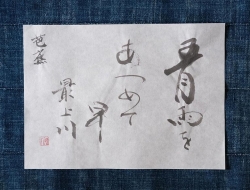 五月雨を
あつめて
早
最上川
芭蕉